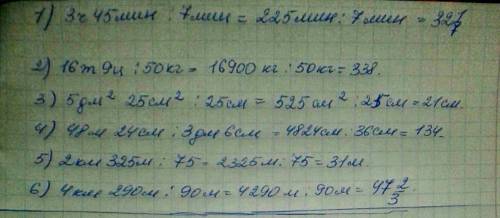 1) 3ч 45мин : 7мин = 225мин : 7мин = 32 1/7
2) 16т 9ц : 50кг = 16900 кг : 50кг = 338.
3) 5дм² 25см² : 25см = 525см² : 25см = 21см.
4) 48м 24см : 3дм 6см = 4824см : 36см = 134.
5) 2км 325м : 75 = 2325м : 75 = 31м.
6) 4км 290м : 90м = 4290м : 90м = 47 2/3.